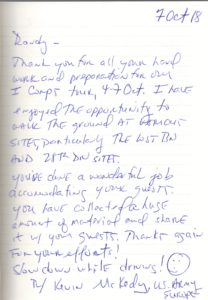 7 Oct 18
Randy -
Thank you for all your hard
work and preparation for our
I Corps tour, 4-7 Oct. I have
enjoyed the opportunity to
walk the ground at various
sites, particularly the Lost Bn
and 28th Div sites.
You've done a wonderful job
accommodating your guests.
You have collected a huge
amount of material and share
it w/ your guests. Thanks again
for your efforts!
Slow down while driving!
V/ Kevin McKedy, U.S. Army
Europe